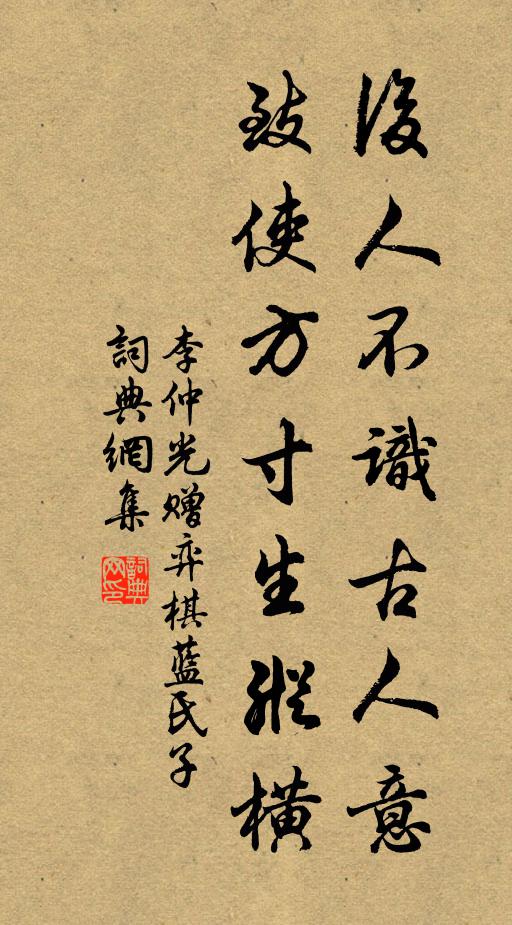 後人不識古人意
致使方寸生縱橫
李仲光贈弈棋藍氏子
詞典網集
詞典网印